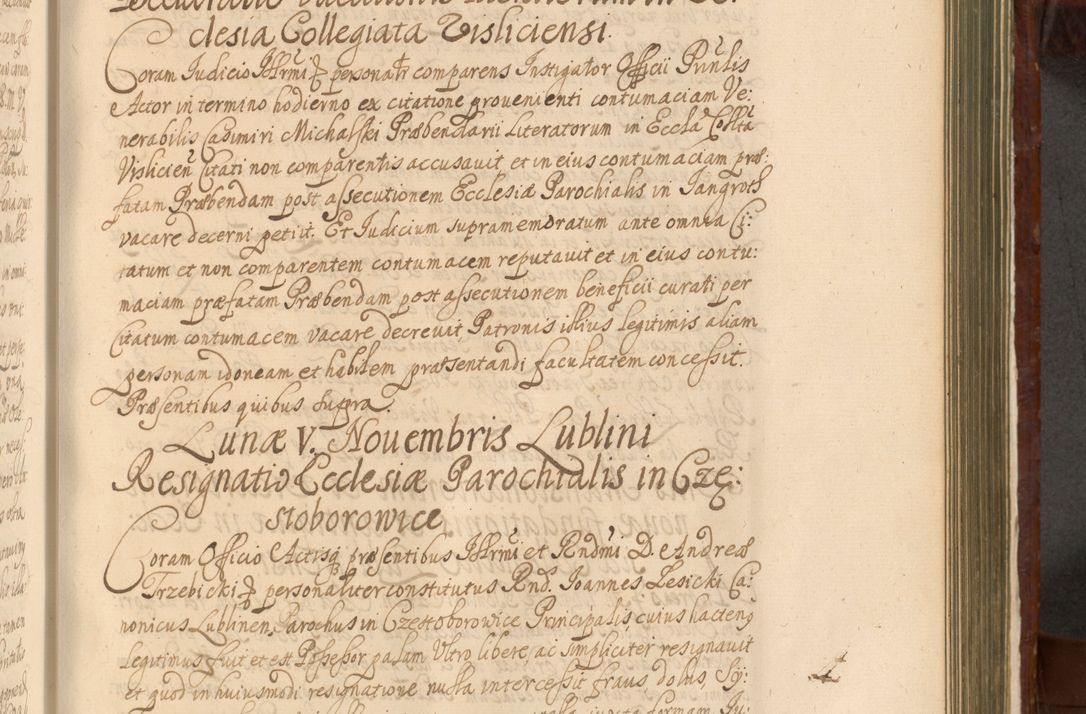 clesia Collegiata Visliciensi.
Coram Iudicio Illrmi &c personalr comparens Instigator Officii Pnntis
Actor in termino hodierno ex citatione provenienti contumaciam Ve:
nerabilis Casimiri Michalski Præbendarii Literatorum in Eccla Collta
Vislicien Citati non comparentis accusavit et in eius contumaciam præ:
fatam Præbendam post assecutionem Ecclesiæ Parochialis in Jangroth
vacare decerni petiit. Et Iudicium supramemoratum ante omnia Ci:
tatum et non comparentem contumacem reputavit et in eius contu:
maciam præfatam Præbendam post assecutionem beneficii curati per
Citatum contumacem vacare decrevit, Patronis illius legitimis aliam
personam idoneam et habilem præsentandi facultatem concessit.
Præsentibus quibus supra.
Lunæ V. Nouembris Lublini
Resignatio Ecclesiæ Parochialis in Czę:
stoborowice
Coram Officio Actisq præsentibus Illrmi et Rndmi D. Andreæ
Trzebicki &c personaliter constitutus Rnd. Ioannes Lesicki Ca:
nonicus Lublinen, Parochus in Czestoborowice Principalis, cuius hactenq
legitimus fuit et est Possessor palam Vltro libere, ac simpliciter resignavit
et quod in huiusmodi resignatione nulla intercessit fraus dolus Sy: